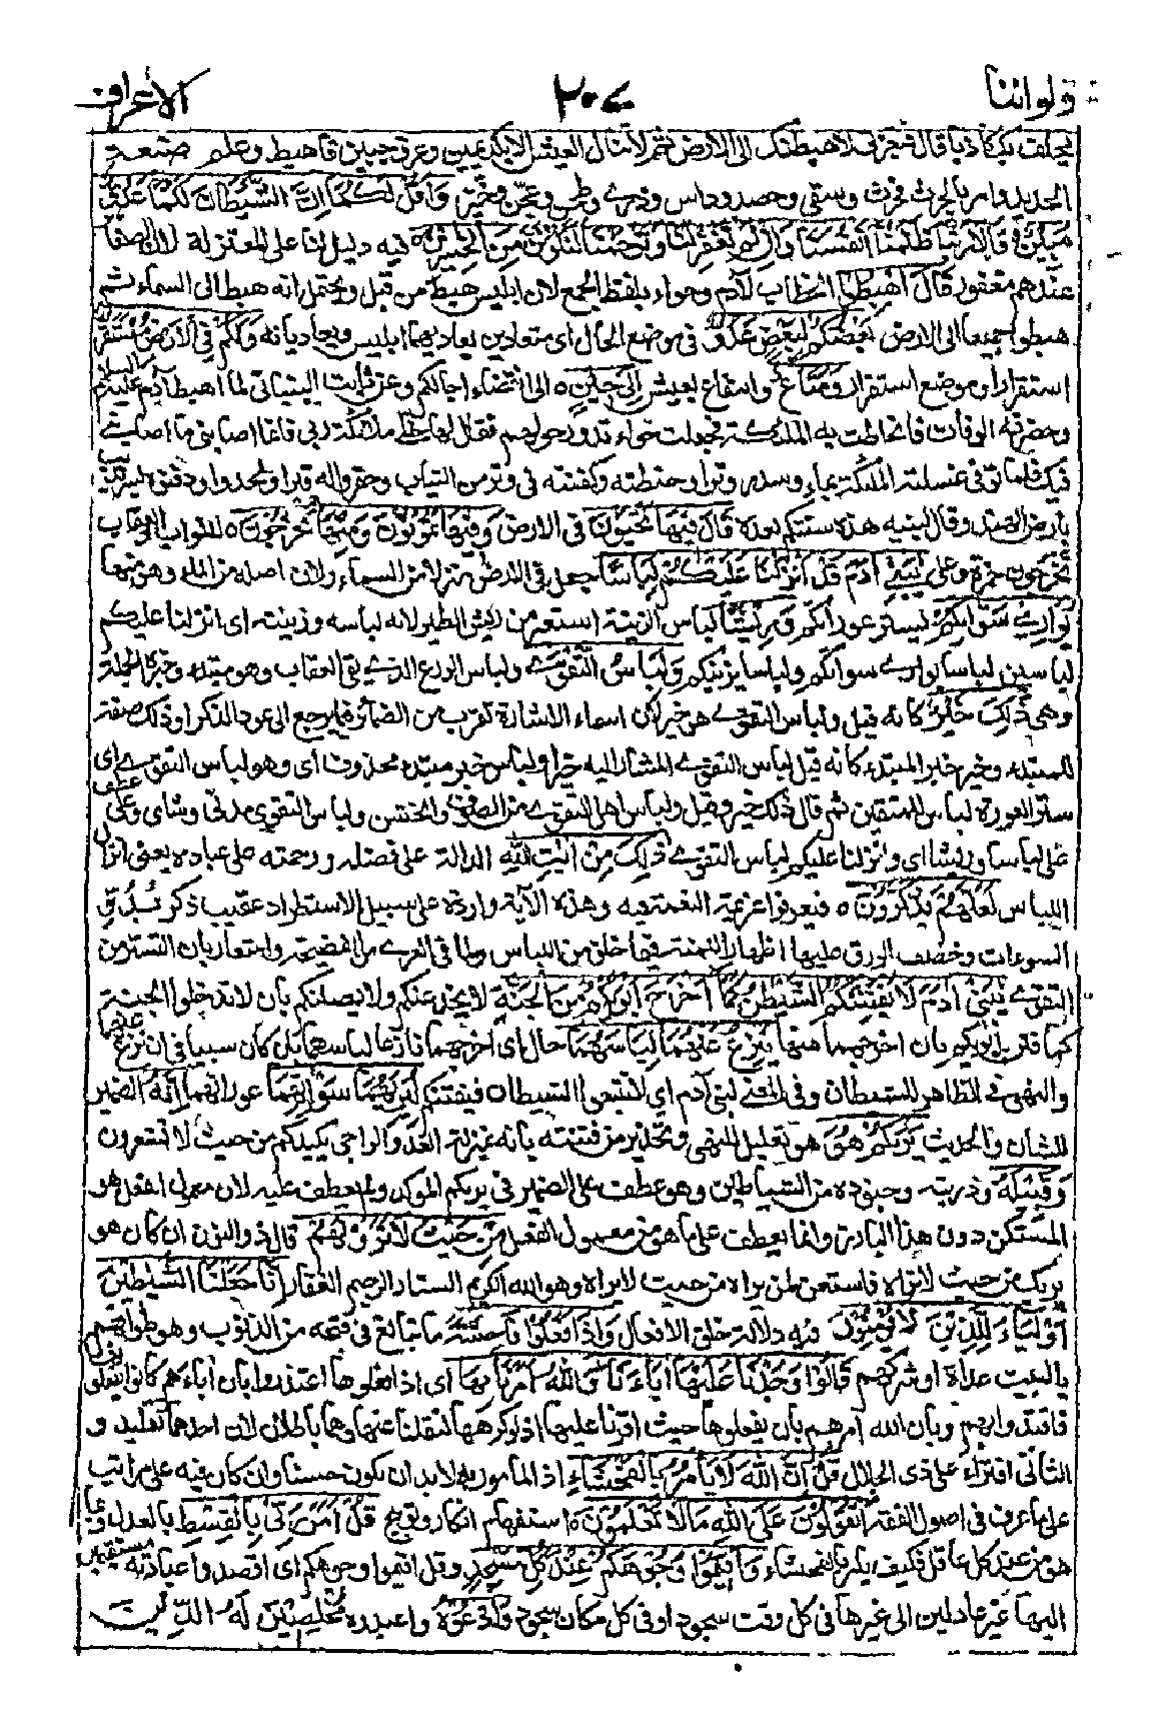 ولو اننا ٢٠٧ الاعراف
يحلف بك كاذبا قال فبعزتى لاهبطنك الى الارض ثم لا تنال العيش الا بكد يمين وعرق جبين فاهبط وعلم صنعة
الحديد وامر بالحرث فحرث وسقى وحصد وداس وذرى وطحن وعجن وخبز وَاَقُلْ لَكُمَا اِنَّ الشَّيْطَانَ لَكُمَا عَدُوٌّ
مُبِيْنٌ قَالَا رَبَّنَا ظَلَمْنَا اَنْفُسَنَا وَاِنْ لَمْ تَغْفِرْ لَنَا وَتَرْحَمْنَا لَنَكُوْنَنَّ مِنَ الْخٰسِرِيْنَ ه فيه دليل لنا على المعتزلة لان الصغائر
عندهم مغفور قَالَ اهْبِطُوْا الخطاب لآدم وحواء بلفظ الجمع لان ابليس هبط من قبل ويحتمل انه هبط الى السماء ثم
هبطوا جميعا الى الارض بَعْضُكُمْ لِبَعْضٍ عَدُوٌّ فى موضع الحال اى متعادين يعاديهما ابليس ويعاديانه وَلَكُمْ فِى الْاَرْضِ مُسْتَقَرٌّ
استقرار او موضع استقرار وَمَتَاعٌ وانتفاع بعيش اِلٰى حِيْنٍ ه الى انقضاء اجالكم وعن ثابت البنانى لما اهبط آدم عليه السلام
وحضرته الوفات فاحاطت به الملائكة فجعلت حواء تدور حولهم فقال لها خلى ملائكة ربى فانما اصابنى ما اصابنى
فيك فلما توفى غسلته الملائكة بماء وسدر وترا وحنطته وكفنته فى وتر من الثياب وحفروا له قبرا ولحدوا ودفنوه بسرنديب
بارض الهند وقال لبنيه هذه سنتكم بعده قَالَ فِيْهَا تَحْيَوْنَ فى الارض وَفِيْهَا تَمُوْتُوْنَ وَمِنْهَا تُخْرَجُوْنَ ه للثواب والعقاب
تخرجون حمزة وعلى يٰبَنِىْ اٰدَمَ قَدْ اَنْزَلْنَا عَلَيْكُمْ لِبَاسًا جعل فى الارض منزلا من السماء ولان اصله من الماء وهو منها
يُوَارِىْ سَوْاٰتِكُمْ يستر عوراتكم وَرِيْشًا لباس الزينة استعير من ريش الطير لانه لباسه وزينته اى انزلنا عليكم
لباسين لباسا يوارى سواتكم ولباسا يزينكم وَلِبَاسُ التَّقْوٰى ولباس الورع الذى يقى العقاب وهو مبتدء وخبره الجملة
وهى ذٰلِكَ خَيْرٌ كانه قيل ولباس التقوى هو خير لان اسماء الاشارة تقرب من الضمائر فيما يرجع الى عود الذكر او ذلك صفة
للمبتدء وخير خبر المبتدء كانه قيل لباس التقوى المشار اليه خير او لباس خبر مبتدء محذوف اى وهو لباس التقوى اى
ستر العورة لباس المتقين ثم قال ذلك خير وقيل ولباس اهل التقوى من الصوف والخشن ولباس التقوى مدنى وشامى وعلى عطف
على لباسا وريشا اى وانزلنا عليكم لباس التقوى ذٰلِكَ مِنْ اٰيٰتِ اللّٰهِ الدالة على فضله ورحمته على عباده يعنى انزال
اللباس لَعَلَّهُمْ يَذَّكَّرُوْنَ ه فيعرفوا عزمة النعمة فيه وهذه الآية واردة على سبيل الاستطراد عقيب ذكر بُدُوّ
السوءات وخصف الورق عليها اظهارا للمنة فيما خلق من اللباس ولما فى العرى من الفضيحة واشعارا بان التستر من
التقوى يٰبَنِىْ اٰدَمَ لَا يَفْتِنَنَّكُمُ الشَّيْطٰنُ كَمَا اَخْرَجَ اَبَوَيْكُمْ مِنَ الْجَنَّةِ لا يخدعنكم ولا يضلنكم بان لا تدخلوا الجنة
كما فتن ابويكم بان اخرجهما منها يَنْزِعُ عَنْهُمَا لِبَاسَهُمَا حال اى اخرجهما نازعا لباسهما بان كان سببا فى ان نزع عنهما
والنهى فى الظاهر للشيطان وفى المعنى لبنى آدم اى لا تتبعوا الشيطان فيفتنكم لِيُرِيَهُمَا سَوْاٰتِهِمَا عوراتهما اِنَّهُ الضمير
للشان والحديث يَرٰىكُمْ هُوَ هو تعليل للنهى وتحذير من فتنته بانه بمنزلة العدو المداجى يكيدكم من حيث لا تشعرون
وَقَبِيْلُهُ وذريته وجنوده من الشياطين وهو عطف على الضمير فى يريكم الموكد ولم يعطف عليه لان معمول الفعل هو
المستكن دون هذا البارز وانما يعطف على ما هو معمول الفعل مِنْ حَيْثُ لَا تَرَوْنَهُمْ قال ذو النون ان كان هو
يريك من حيث لا تراه فاستعن بمن يراه من حيث لا يراه وهو الله الكريم الستار الرحيم الغفار اِنَّا جَعَلْنَا الشَّيٰطِيْنَ
اَوْلِيَاءَ لِلَّذِيْنَ لَا يُؤْمِنُوْنَ فيه دلالة خلق الافعال وَاِذَا فَعَلُوْا فَاحِشَةً ما تبالغ فى قبحه من الذنوب وهو طوافهم
بالبيت عراة او شركهم قَالُوْا وَجَدْنَا عَلَيْهَا اٰبَاءَنَا وَاللّٰهُ اَمَرَنَا بِهَا اى اذا فعلوها اعتذروا بان اباءهم كانوا يفعلونها
فاقتدوا بهم وبان الله امرهم بان يفعلوها حيث اقرنا عليها اذ لو كرهها لنقلنا عنها وهما باطلان لان احدهما تقليد و
الثانى افتراء على ذى الجلال قُلْ اِنَّ اللّٰهَ لَا يَاْمُرُ بِالْفَحْشَاءِ اذ المامور به لابد ان يكون حسنا وان كان فيه على مراتب
على ما عرف فى اصول الفقه اَتَقُوْلُوْنَ عَلَى اللّٰهِ مَا لَا تَعْلَمُوْنَ ه استفهام انكار وتوبيخ قُلْ اَمَرَ رَبِّىْ بِالْقِسْطِ بالعدل وبما
هو حسن عند كل عاقل فكيف يامر بالفحشاء وَاَقِيْمُوْا وُجُوْهَكُمْ عِنْدَ كُلِّ مَسْجِدٍ وقل اقيموا وجوهكم اى اقصدوا عبادته مستقيمين
اليها غير عادلين الى غيرها فى كل وقت سجود او فى كل مكان سجود وَادْعُوْهُ واعبدوه مُخْلِصِيْنَ لَهُ الدِّيْنَ